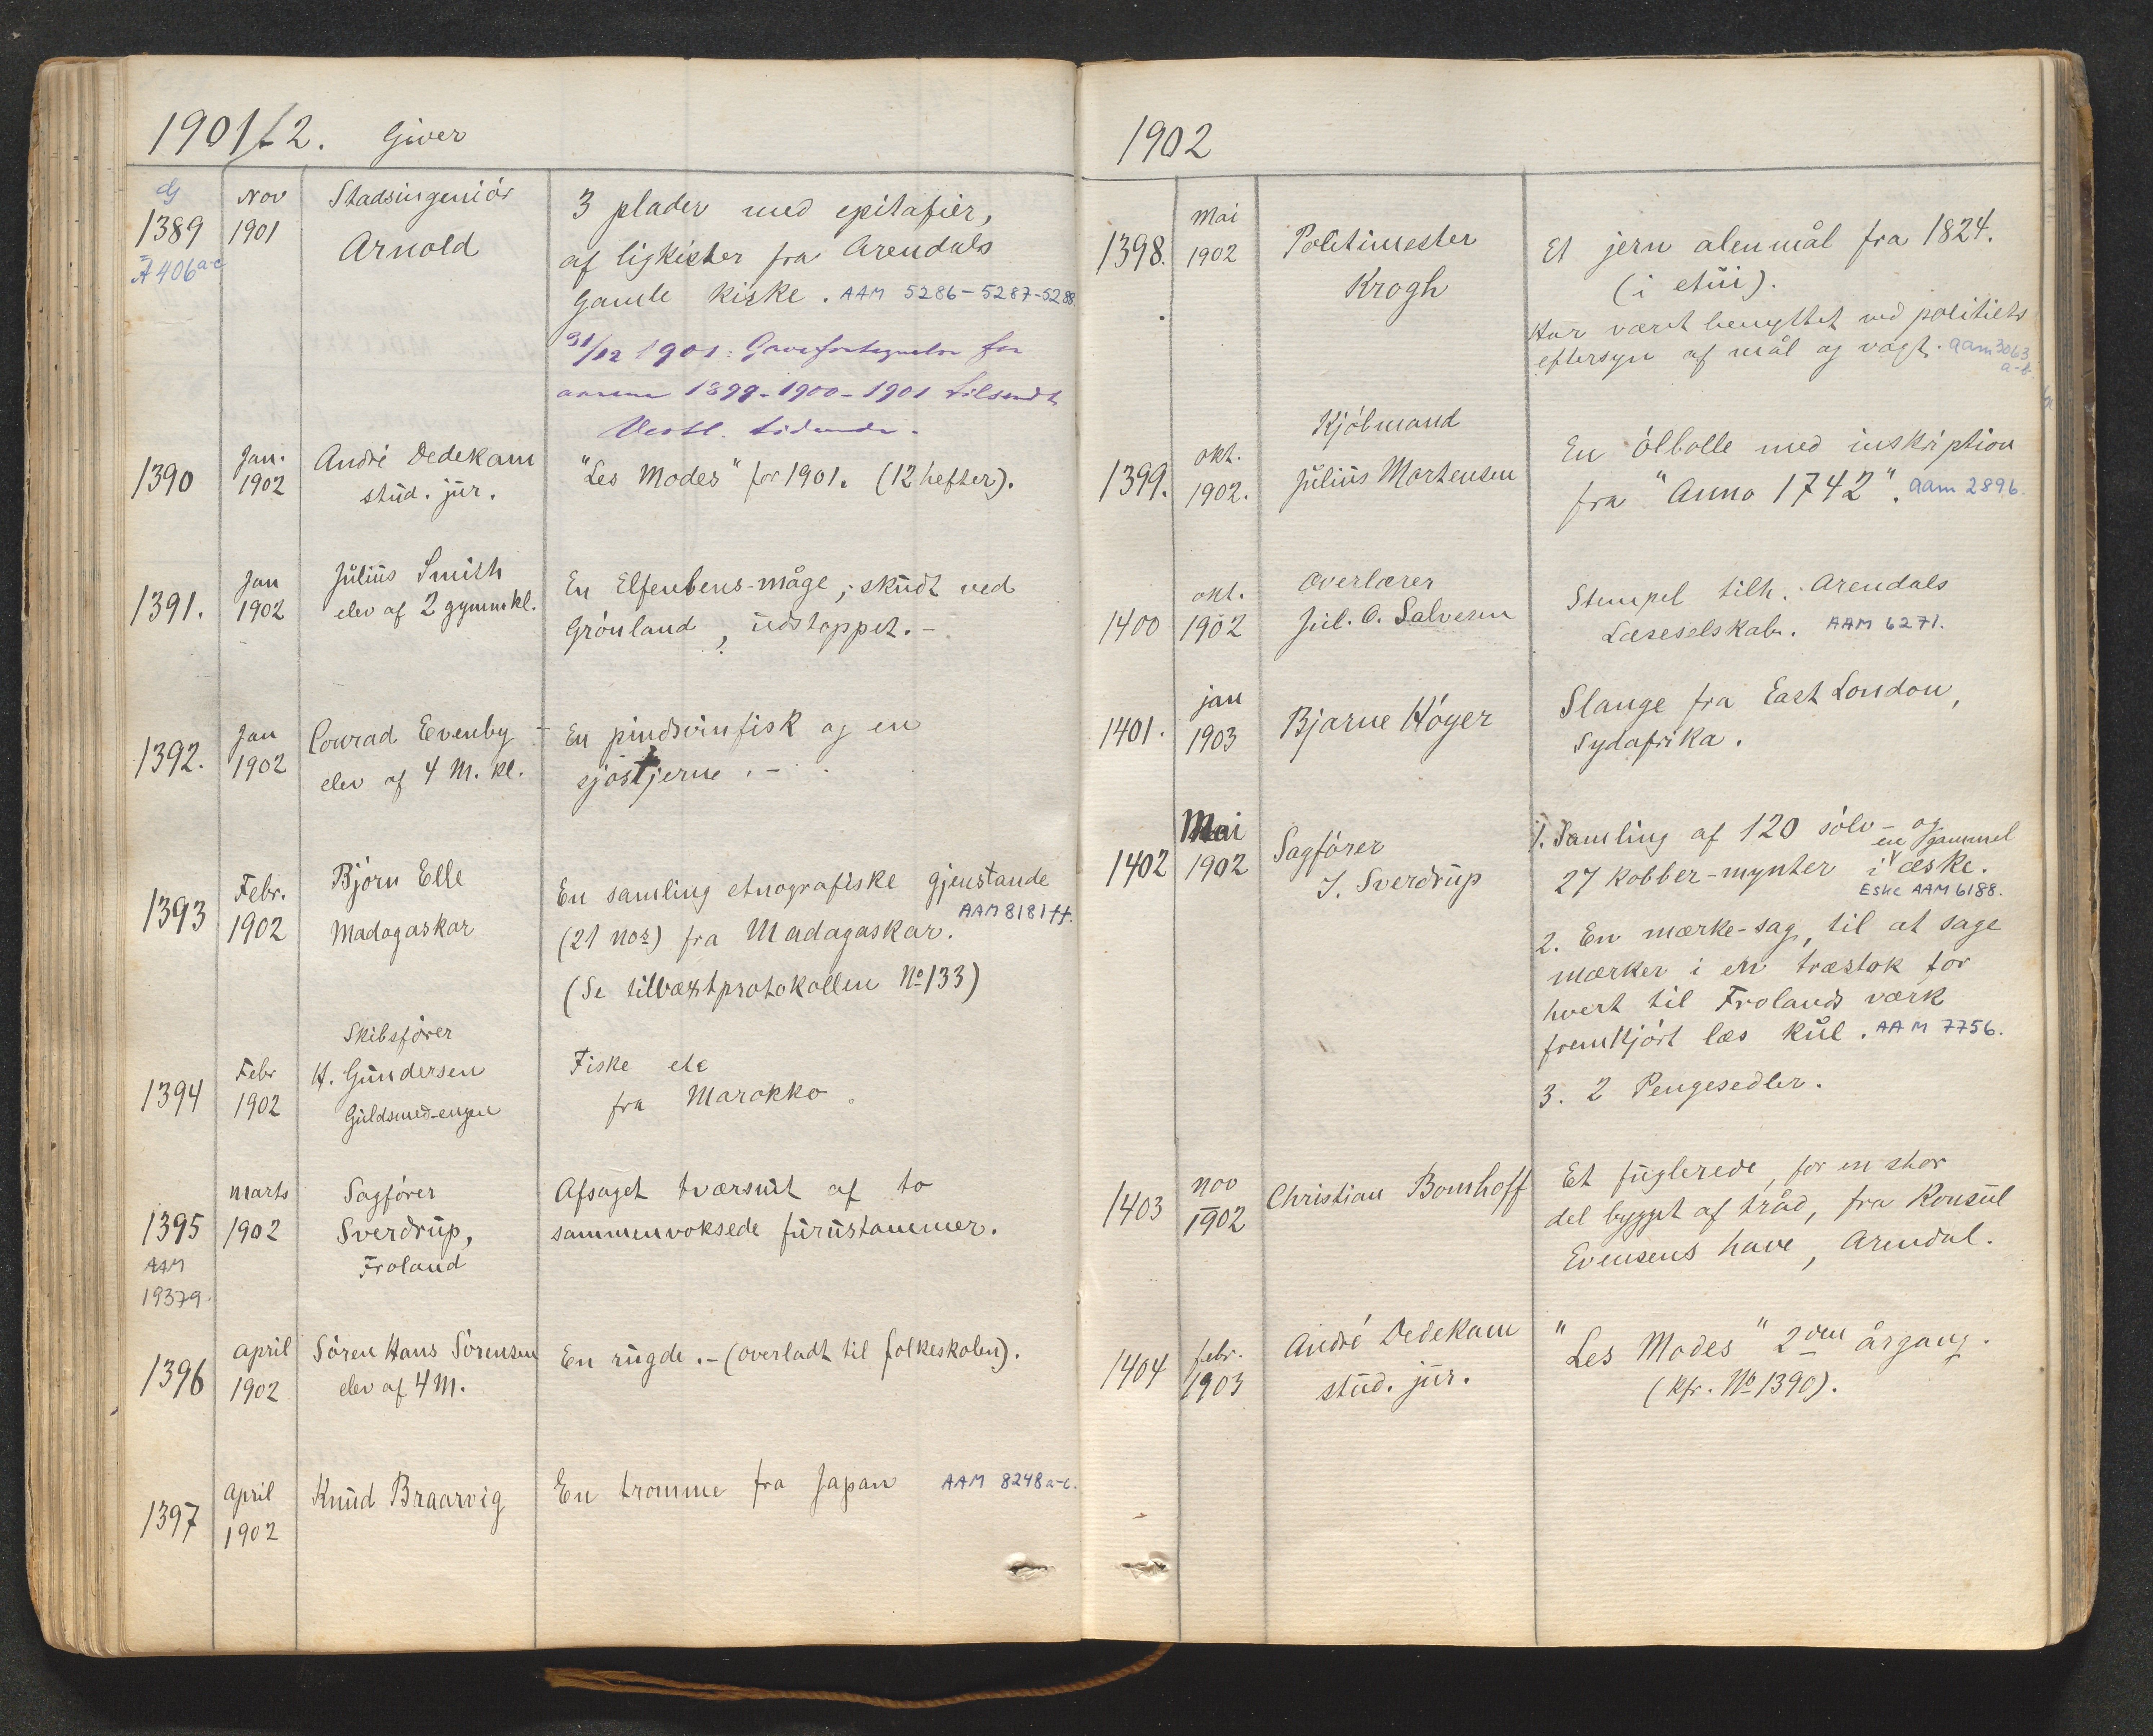 1901/2. Giver
1389 Nov 1901 Stadsingeniör Arnold
A 406 a-c
3 plader med epitafier,
af ligkister fra Arendals
Gamle kirke. AAM 5286-5287-5288
31/12 1901: Gavefortegnelse for
aarene 1899-1900-1901 tilsendt
Vestl. tidende.
1390 Jan. 1902 André Dedekam stud. jur.
"Les Modes" for 1901. (12 hefter).
1391. Jan 1902 Julius Smith elev af 2 gymnkl.
En Elfenbens-måge, skudt ved
Grönland, udstoppet.-
1392. Jan 1902 Conrad Evenby - elev af 4 M. kl.
En pindsvinfisk og en
sjöstjerne.-
1393 Febr. 1902 Björn Elle Madagaskar
En samling etnografiske gjenstande
AAM 8181 ff.
(21 nos) fra Madagaskar.
(Se tilvæxtprotokollen No 133)
1394 Febr 1902 Skibsförer H. Gundersen Guldsmed-engen
Fiske etc
fra Marokko.
1395 marts 1902 Sagförer Sverdrup, Froland
AAM
19379.
Afsaget tværsnit af to
sammenvoksede furustammer.
1396 april 1902 Sören Hans Sörensen elev af 4 M.
En rugde.-(overladt til folkeskolen).
1397 april 1902 Knud Braarvig
En tromme fra Japan AAM 8248 a-c.
1902
1398. Mai 1902 Politimester Krogh
Et jern alenmål fra 1824.
(i etui).
Har været benyttet ved politiets
eftersyn af mål og vægt. aam 3063
a-b.
1399. okt. 1902. Kjöbmand Julius Mortensen
En ölbolle med inskription
fra "Anno 1742". aam 2896.
1400 okt. 1902 Overlærer Jul. O. Salvesen
Stempel tilh. Arendals
Læseselskab. AAM 6271.
1401. jan 1903 Bjarne Höyer
Slange fra East London,
Sydafrika.
1402 Mai 1902 Sagförer J. Sverdrup
1. Samling af 120 sölv- og
27 kobber-mynter i en gammel æske.
Eske AAM 6188.
2. En mærke-sag, til at sage
mærker i en træstok for
hvert til Frolands værk
fremkjört læs kul. AAM 7756.
3. 2 Pengesedler.
1403 nov 1902 Christian Bomhoff
Et fuglerede, for en stor
del bygget af tråd, fra Konsul
Evensens have, Arendal.
1404 febr. 1903 André Dedekam stud. jur.
"Les Modes" 2den årgang.
(kfr. No 1390).